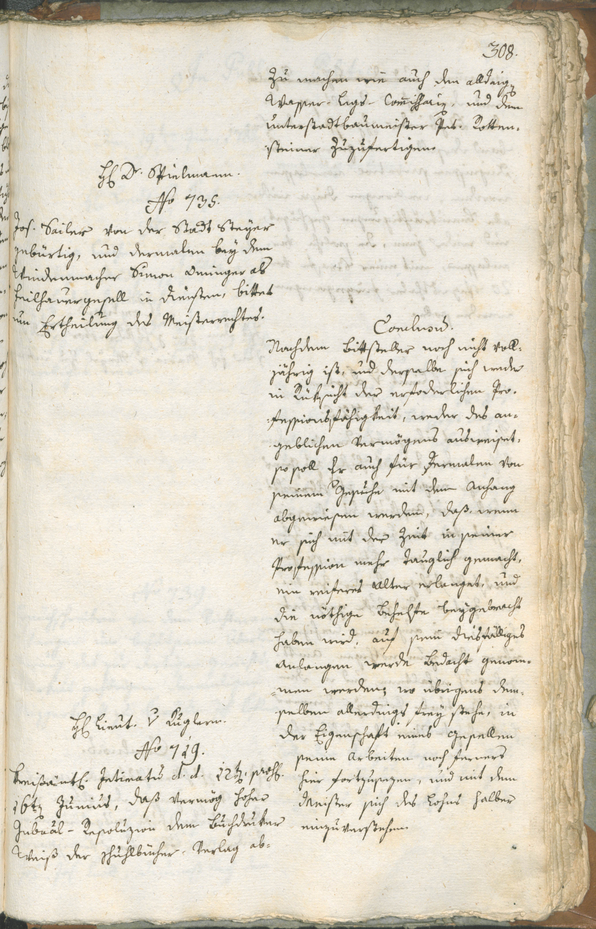 308.
zu machen wie auch den allda¬
Wasser-Ligs- Commißaiz. und dem
unterstadtbaumeister Ant. Rotten¬
steiner zuzufertigen.
H. D. Spielmann.
No 735.
Jos. Sailer von der Stadt Steyer
gebürtig, und dermalen bey dem
Windenmacher Simon Oninger als
Feilhauergesell in Diensten, bittet
um Ertheilung des Meisterrechtes.
Conclusio.
Nachdem Bittsteller noch nicht voll¬
jährig ist, und derselbe sich weder
in Rücksicht der erfoderlichen Pro¬
fessionsfähigkeit, weder des an¬
geblichen Vermögens ausweiset,
so soll Er auch für dermalen von
seinem Gesuche mit dem Anhang
abgewiesen werden, daß, wenn
er sich mit der Zeit in seiner
Profession mehr tauglich gemacht,
ein reiferes Alter erlanget, und
die nöthige Behelfe beygebracht
haben wird, auf sein diesfälliges
Anlangen werde Bedacht genom¬
men werden; wo übrigens dem¬
selben allerdings frey stehe, in
der Eigenschaft eines Gesellen
seine Arbeiten noch ferners
hier fortzusezen, und mit dem
Meister sich des Lohns halber
einzuverstehen.
H. Lieut. v Kuglern.
No 749.
Kreisamtl. Intimatum d. d. 12t. prs.
16t. Junius, daß vermög hoher
Gubral-Resoluzion dem Buchdruker
Weiß der Schuhlbücher-Verlag ab¬